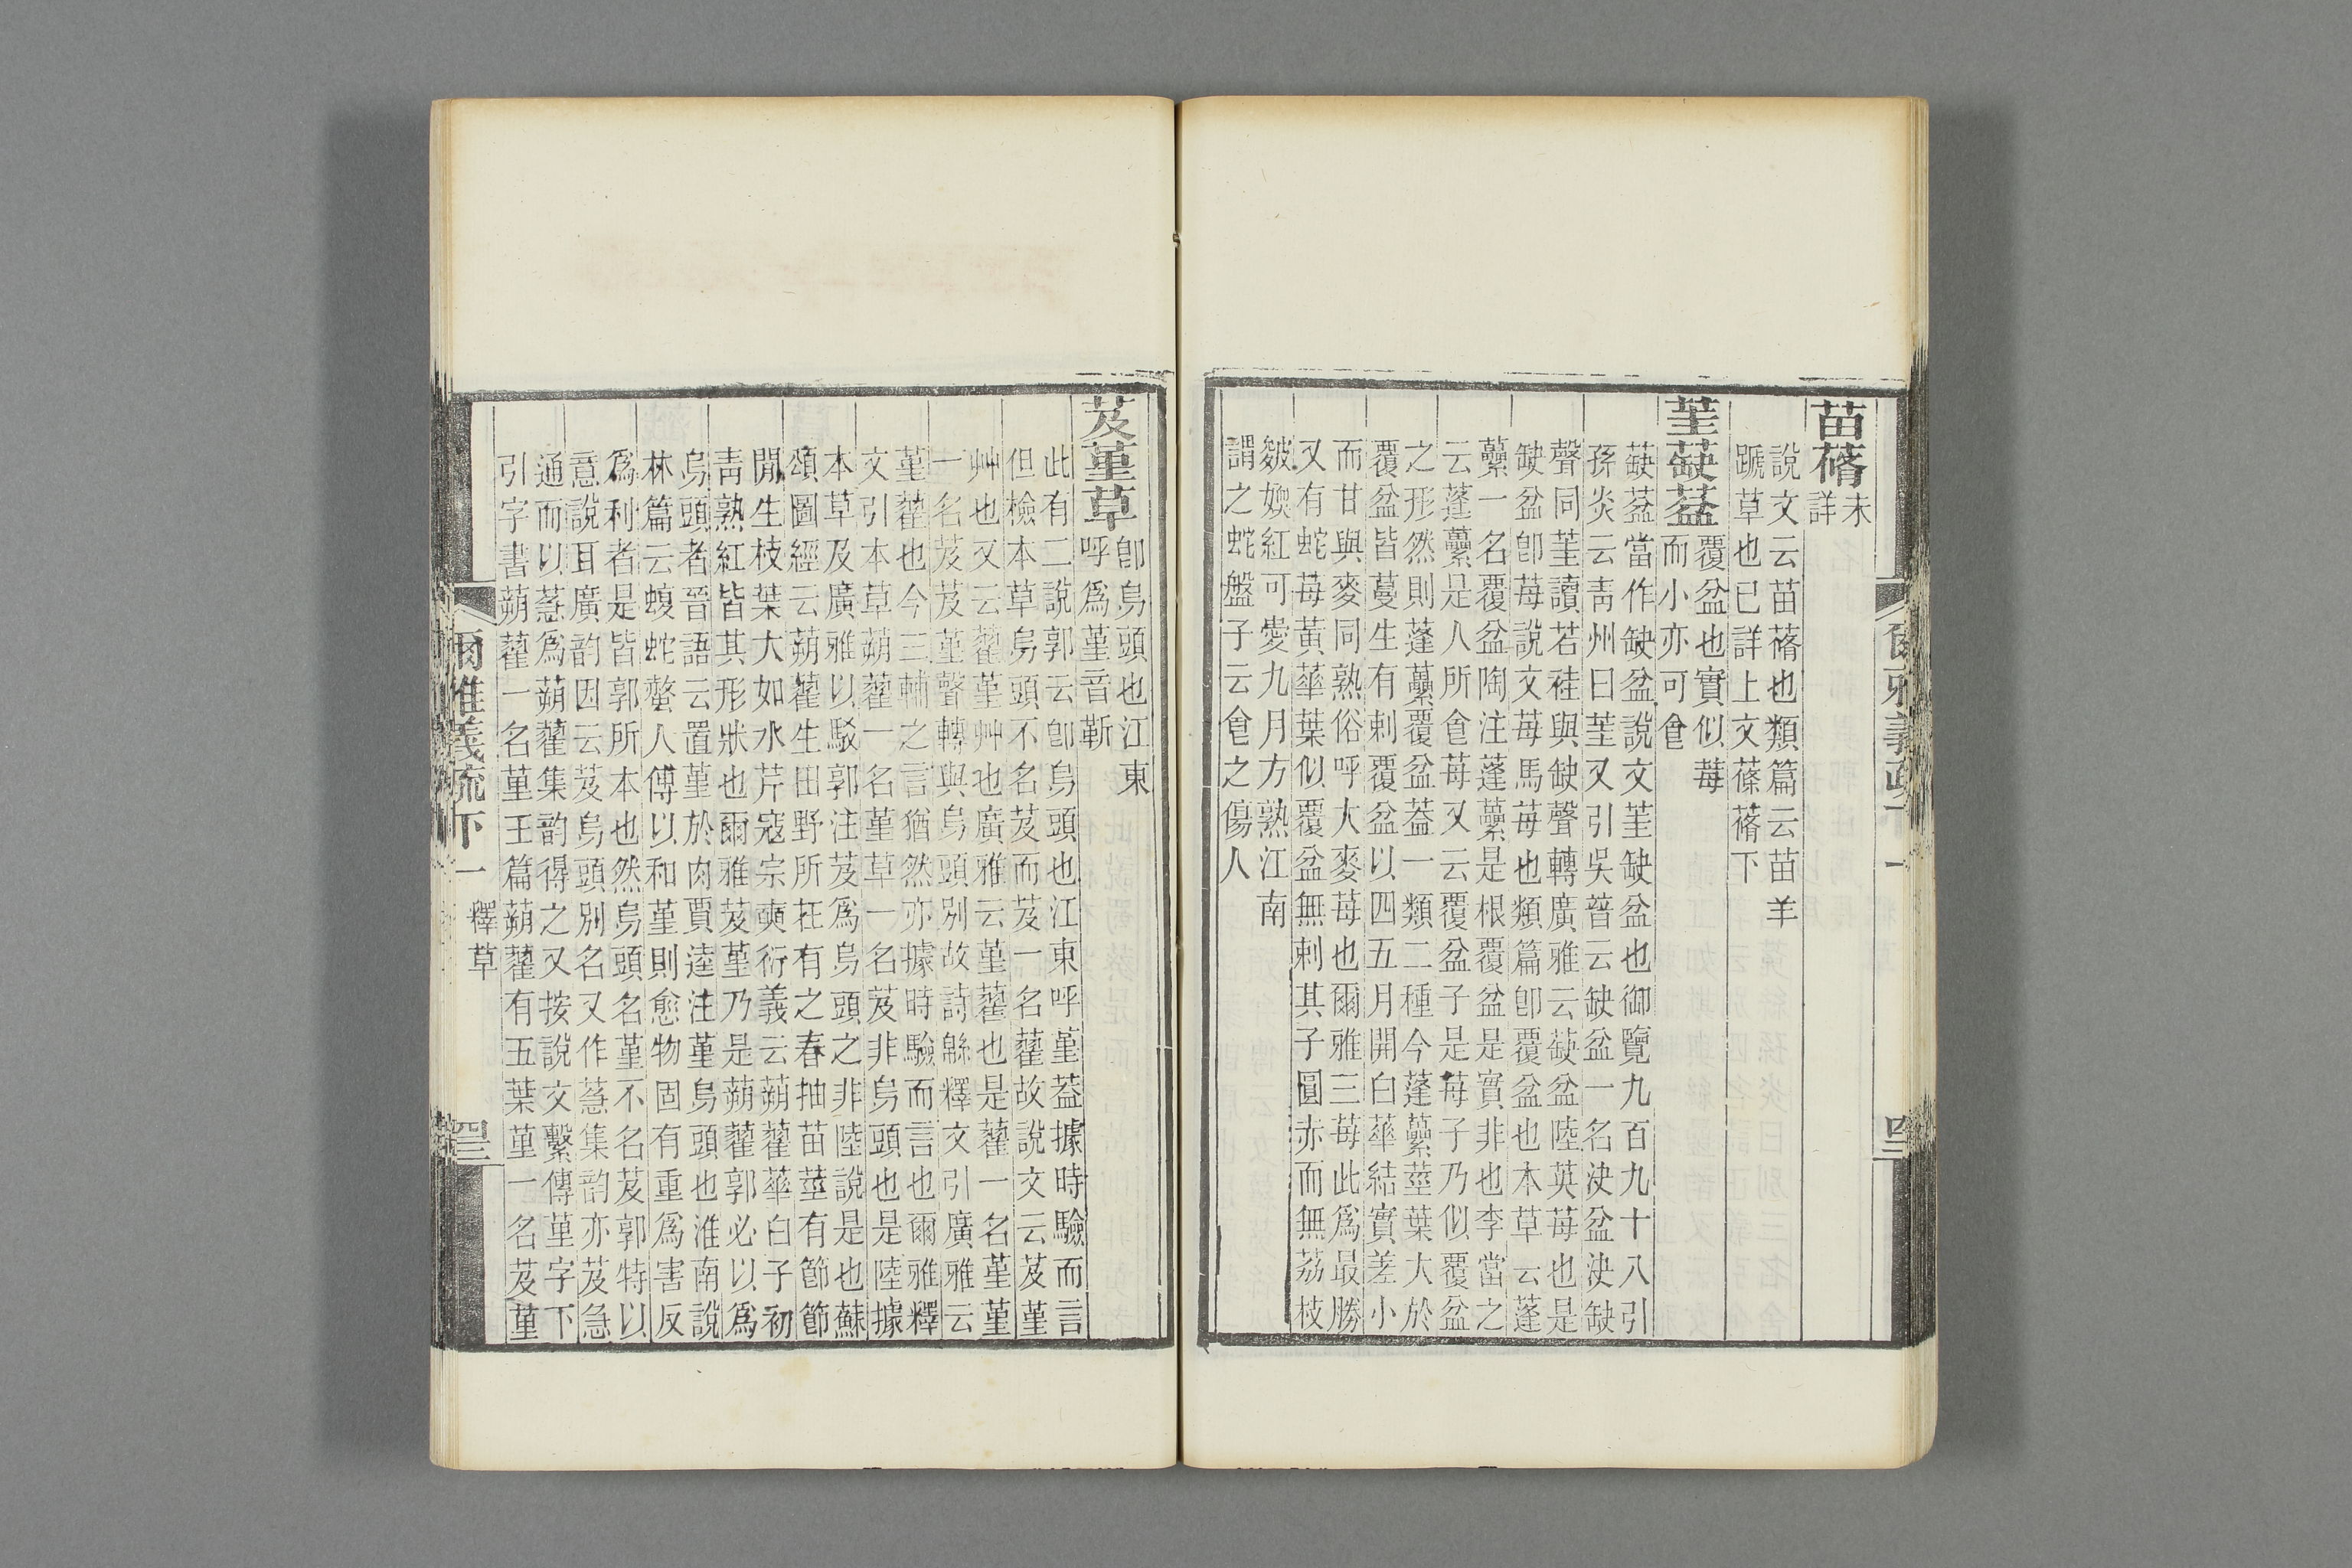 苗蓨未
詳
說文云苗蓨也類篇云苗羊
蹏草也已詳上文蓧蓨下
茥蒛葐覆盆也實似莓
而小亦可食
蒛葐當作缺盆說文茥缺盆也御覽九百九十八引
孫炎云靑州曰茥又引吳普云缺盆一名決盆決缺
聲同茥讀若袿與缺聲轉廣雅云蒛盆陸英莓也是
缺盆卽莓說文莓馬莓也類篇卽覆盆也本草云蓬
虆一名覆盆陶注蓬虆是根覆盆是實非也李當之
云蓬虆是人所食莓又云覆盆子是莓子乃似覆盆
之形然則蓬虆覆盆葢一類二種今蓬虆莖葉大於
覆盆皆蔓生有刺覆盆以四五月開白華結實差小
而甘與麥同熟俗呼大麥莓也爾雅三莓此爲最勝
又有蛇莓黃華葉似覆盆無刺其子圓亦而無荔枝
皴㛣紅可愛九月方熟江南
謂之蛇盤子云食之傷人
爾雅義疏下一
芨堇草卽烏頭也江東
呼爲堇音靳
此有二說郭云卽烏頭也江東呼堇葢據時驗而言
但檢本草烏頭不名芨而芨一名藋故說文云芨堇
艸也又云藋堇艸也廣雅云堇藋也是藋一名堇堇
一名芨芨堇聲轉與烏頭別故詩緜釋文引廣雅云
堇藋也今三輔之言猶然亦據時驗而言也爾雅釋
文引本草蒴藋一名堇草一名芨非烏頭也是陸據
本草及廣雅以駁郭注芨爲烏頭之非陸說是也蘇
頌圖經云蒴藋生田野所在有之春抽苗莖有節節
閒生枝葉大如水芹寇宗奭衍義云蒴藋華白子初
靑熟紅皆其形狀也爾雅芨堇乃是蒴藋郭必以爲
烏頭者晉語云置堇於肉賈逵注堇烏頭也淮南說
林篇云蝮蛇螫人傅以和堇則愈物固有重爲害反
爲利者是皆郭所本也然烏頭名堇不名芨郭特以
意說耳廣韵因云芨烏頭別名又作蕮集韵亦芨急
通而以蕮爲蒴藋集韵得之又按說文繫傳堇字下
引字書蒴藋一名堇玉篇蒴藋有五葉堇一名芨堇
爾雅義疏下一　釋草　四三